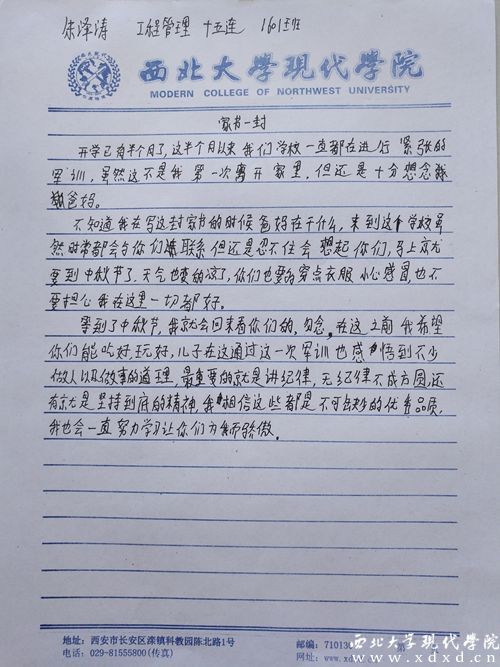 朱泽涛 工程管理 十五连 1601班
西北大學現代學院
MODERN COLLEGE OF NORTHWEST UNIVERSITY
家书一封
开学已有半个月了，这半个月以来我们学校一直都在进行紧张的
军训，虽然这不是我第一次离开家里，但还是十分想念我
爸妈。
不知道我在写这封家书的时候爸妈在干什么，来到这个学校虽
然时常都会与你们联系但还是忍不住会想起你们，马上就
要到中秋节了，天气也变的凉了，你们也要多穿点衣服小心感冒，也不
要担心我在这里一切都好。
等到了中秋节，我就会回来看你们的，勿念。在这之前我希望
你们能吃好，玩好，儿子在这通过这一次军训也感悟到不少
做人以及做事的道理，最重要的就是讲纪律，无纪律不成方圆还
有就是坚持到底的精神，我相信这些都是不可缺少的优秀品质，
我也会一直努力学习让你们为我而骄傲。
地址：西安市长安区滦镇科教园陈北路1号
电话：029-81555800(传真)
邮编：71013
网址：www.
西北大学现代学院
www.xdxd.cn